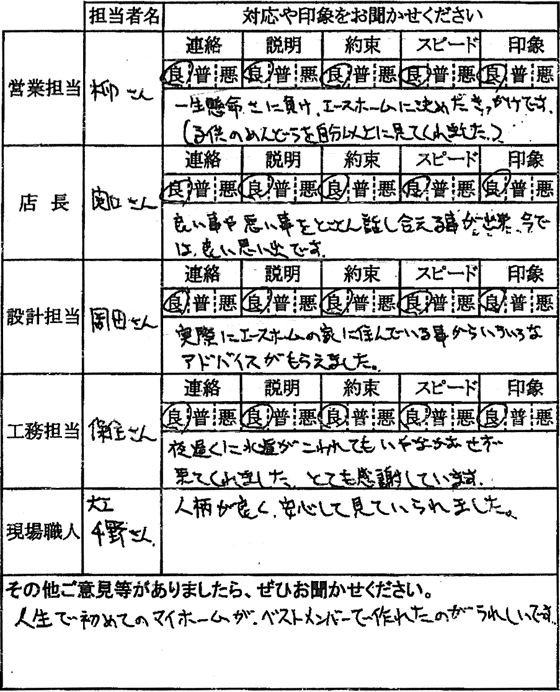 担当者名 対応や印象をお聞かせください
連絡 説明 約束 スピード 印象
営業担当 柳さん 良 普 悪 良 普 悪 良 普 悪 良 普 悪 良 普 悪
一生懸命さに負け、エースホームに決めたきっかけです。
(子供のめんどうを自分以上に見てくれました。)
連絡 説明 約束 スピード 印象
店長 さん 良 普 悪 良 普 悪 良 普 悪 良 普 悪 良 普 悪
良い事や悪い事をとことん話し合える事が出来、今で
は、良い思い出です。
連絡 説明 約束 スピード 印象
設計担当 岡田さん 良 普 悪 良 普 悪 良 普 悪 良 普 悪 良 普 悪
実際にエースホームの家に住んでいる事からいろいろな
アドバイスがもらえました。
連絡 説明 約束 スピード 印象
工務担当 保住さん 良 普 悪 良 普 悪 良 普 悪 良 普 悪 良 普 悪
夜遅くに水道がこわれてもいやなかおせず
来てくれました。とても感謝しています。
現場職人 大工 人柄が良く、安心して見ていられました。
千野さん
その他ご意見等がありましたら、ぜひお聞かせください。
人生で初めてのマイホームが、ベストメンバーで作れたのがうれしいです。